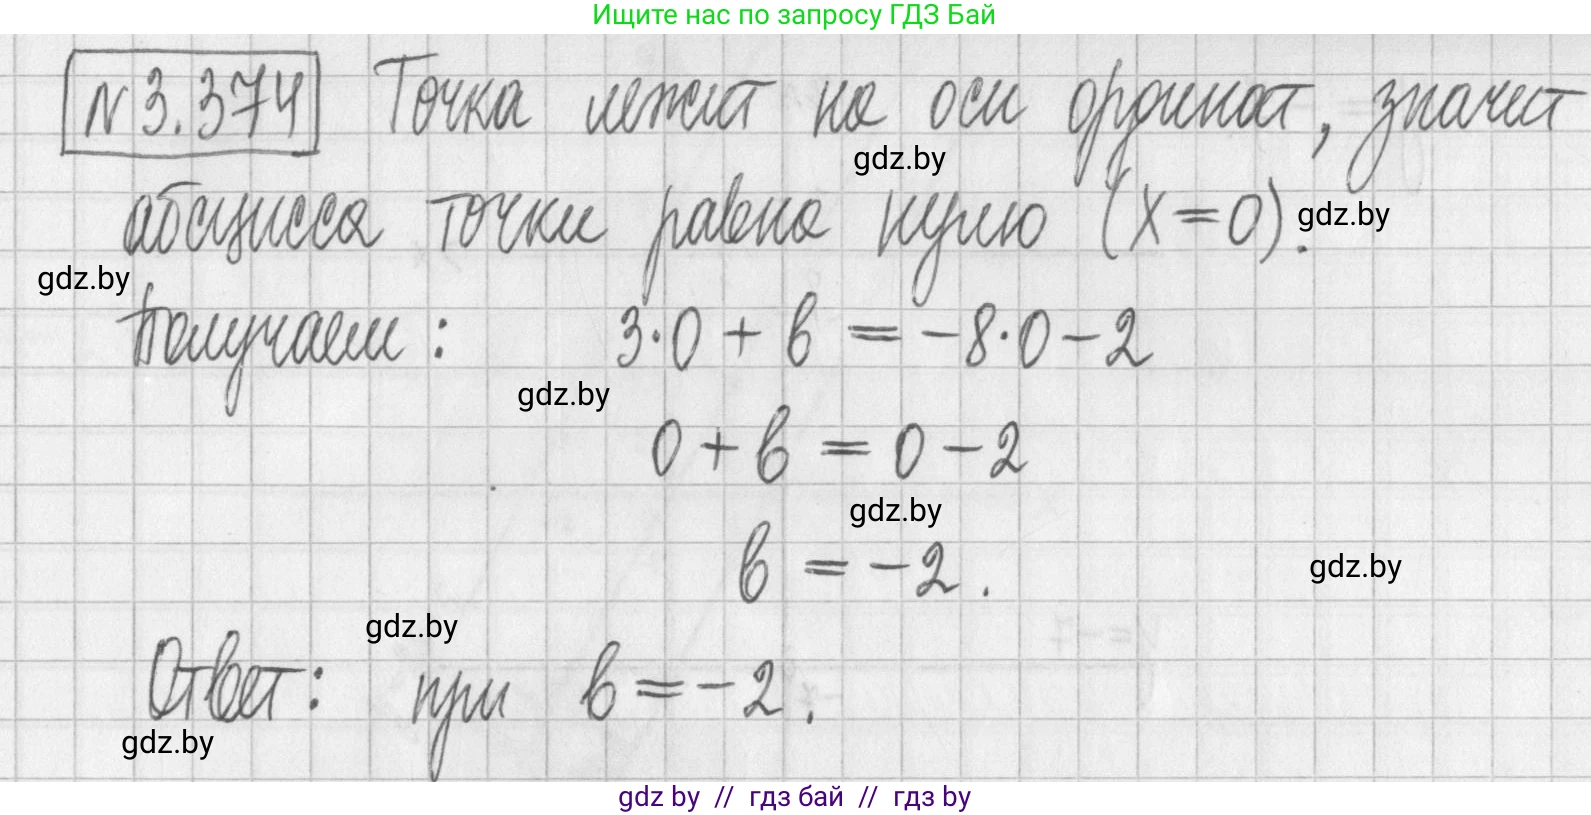 Ищите нас по запросу ГДЗ Бай
№ 3.374 Точка лежит на оси ординат, значит
gdz.by
абсцисса точки равна нулю (x=0). gdz.by
gdz.by
Получаем: 3·0 + b = -8·0 - 2
gdz.by
0 + b = 0 - 2
gdz.by
b = -2.
gdz.by
gdz.by
Ответ: при b = -2.
gdz.by
gdz by // гдз бай // гдз by